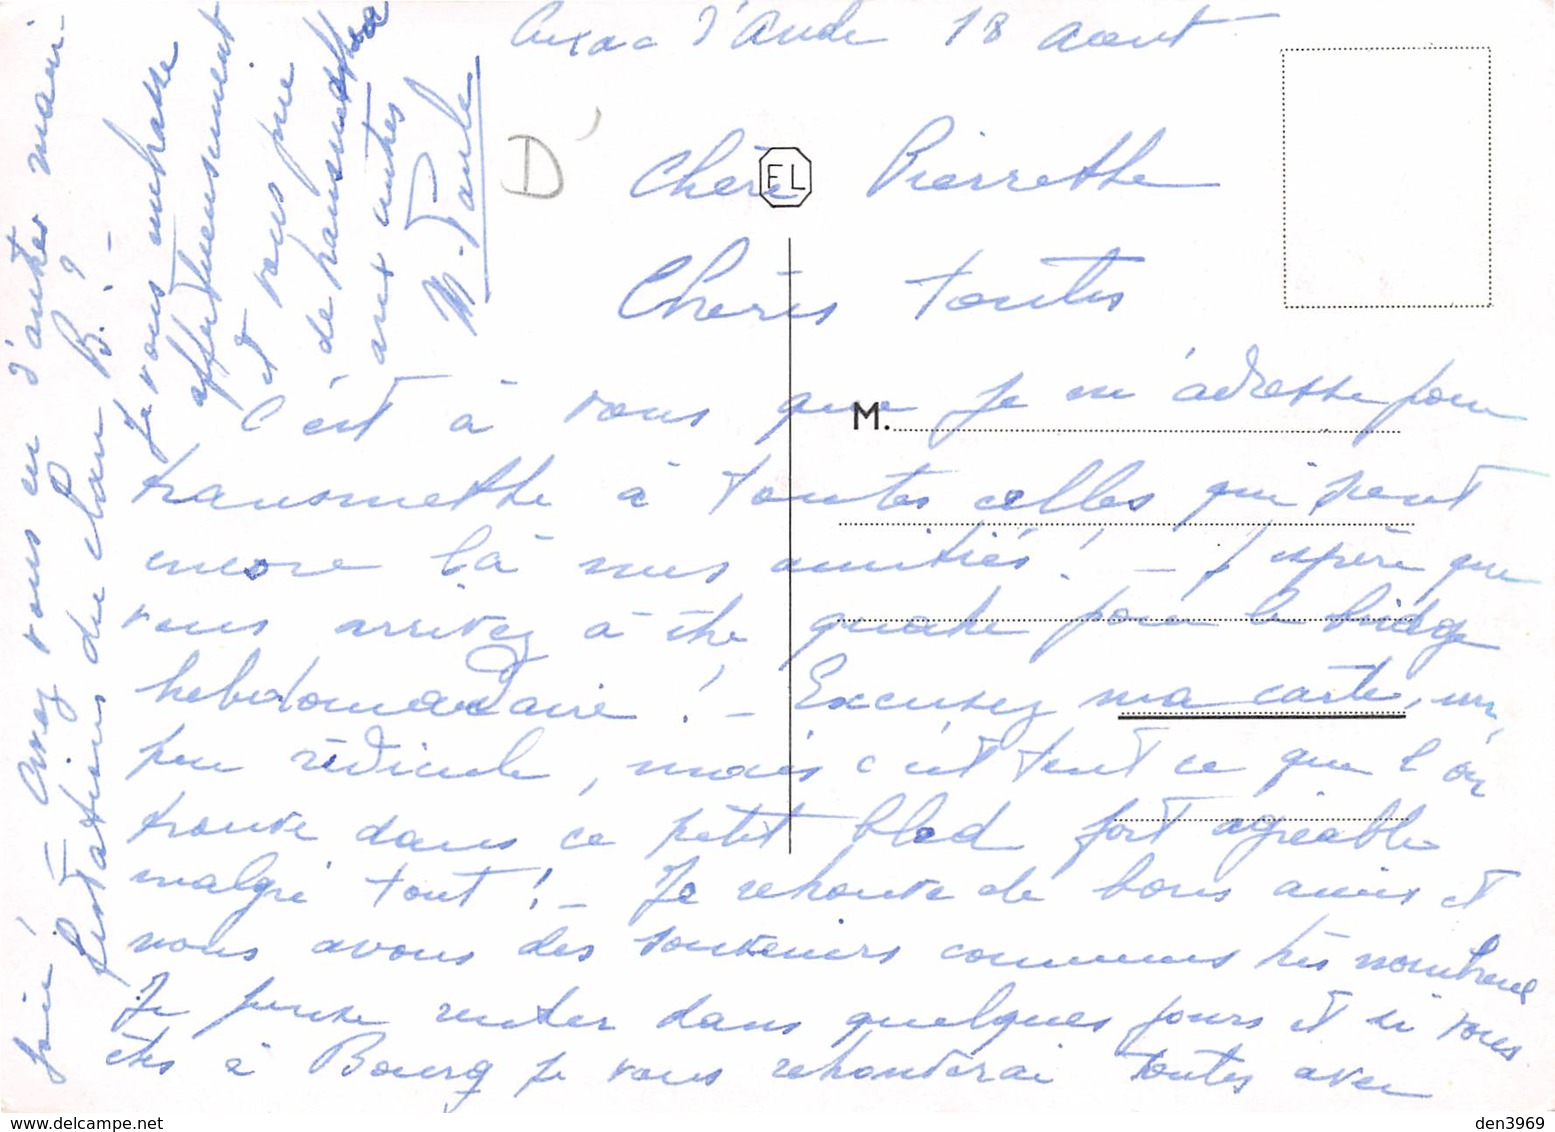 Cuxac d'Aude 18 Aout
D'
FL
Chère Pierrette
Chères toutes
C'est à vous que je m'adresse pour
M.
transmettre à toutes celles qui sont
encore là mes amitiés ! - J'espère que
vous arrivez à être quatre pour le bridge
hebdomadaire ! - Excusez ma carte, un
peu ridicule, mais c'est tout ce que l'on
trouve dans ce petit bled fort agréable
malgré tout ! - Je retrouve de bons amis et
nous avons des souvenirs communs très nombreux
Je pense rentrer dans quelques jours et si vous
êtes à Bourg je vous retrouverai toutes avec
joie ! - Avez vous eu d'autres mani-
festations du clan B. ? -
Je vous embrasse
affectueusement
et vous prie
de transmettre
aux autres
M. Paule
www.delcampe.net
den3969